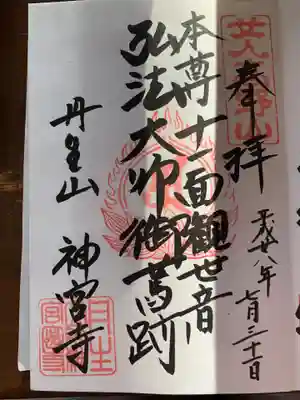 奉拝
平成廿八年
七月三十日
本尊十一面觀世音
弘法大师御舊跡
丹生山 神宮寺